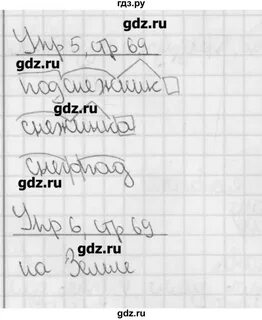 гдз.ру
Упр 5, стр 69
gdz.ru
подснежник
gdz.ru
снежинка
gdz.ru
снегопад
gdz.ru
Упр 6, стр 69
gdz.ru
на Земле
gdz.ru